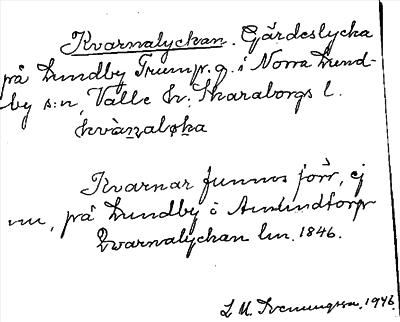 Kvarnalyckan. Gärdeslycka
på Lundby Trump.g. i Norra Lund-
by s:n, Valle hd: Skaraborgs l.
Kvarnar funnos förr, ej
nu, på Lundby o Amlindtorp
Qvarnalychan lm. 1846.
L M. Svenungsson, 1946.